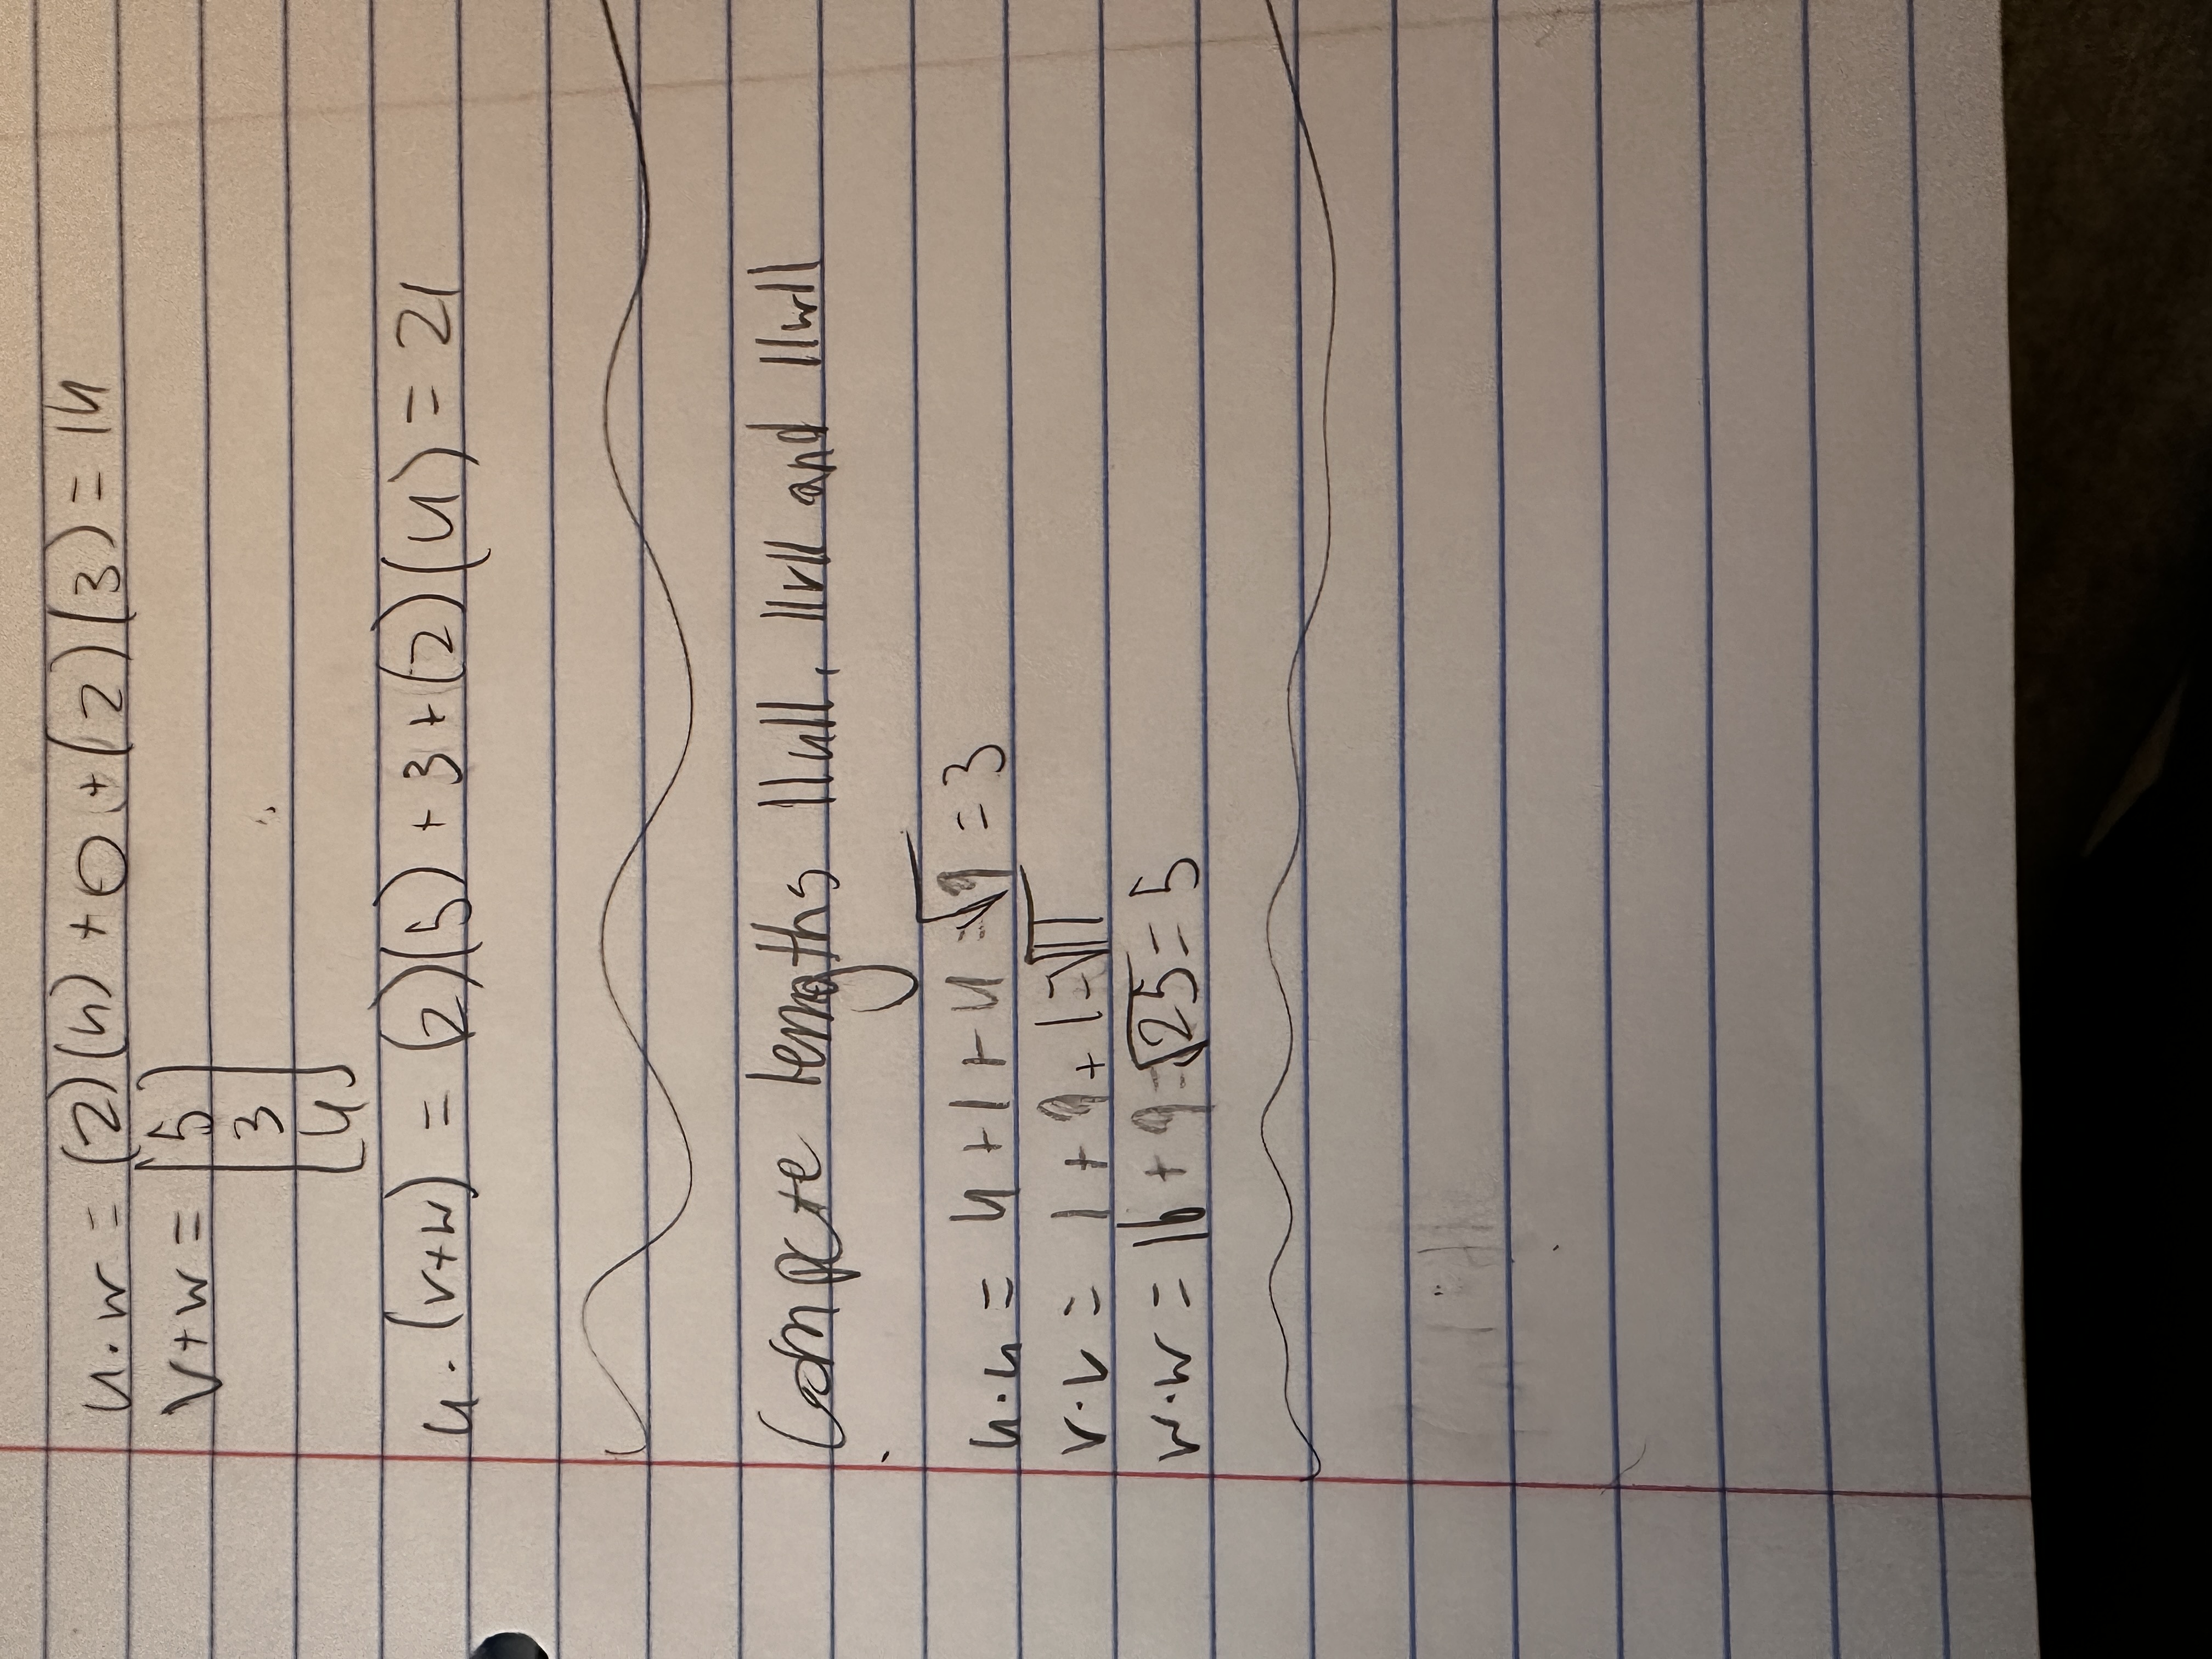 u·w = (2)(4) + 0 + (2)(3) = 14
v+w = [5
3
4]
u·(v+w) = (2)(5) + 3 + (2)(4) = 21
Compute lengths ||u||, ||v|| and ||w||
u·u = 4+1+4 = √9 = 3
v·v = 1+9+1 = √11
w·w = 16+9 = √25 = 5